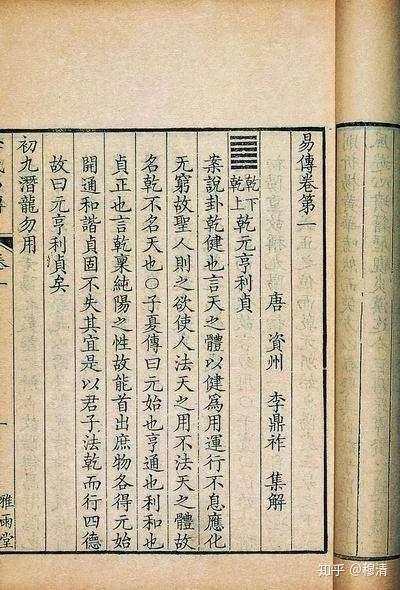 易傳卷第一
唐 資州 李鼎祚 集解
乾下乾上 乾元亨利貞
案說卦乾健也言天之體以健爲用運行不息應化
无窮故聖人則之欲使人法天之用不法天之體故
名乾不名天也〇子夏傳曰元始也亨通也利和也
貞正也言乾稟純陽之性故能首出庶物各得元始
開通和諧貞固不失其宜是以君子法乾而行四德
故曰元亨利貞矣
初九潛龍勿用
雅雨堂
知乎 @穆清